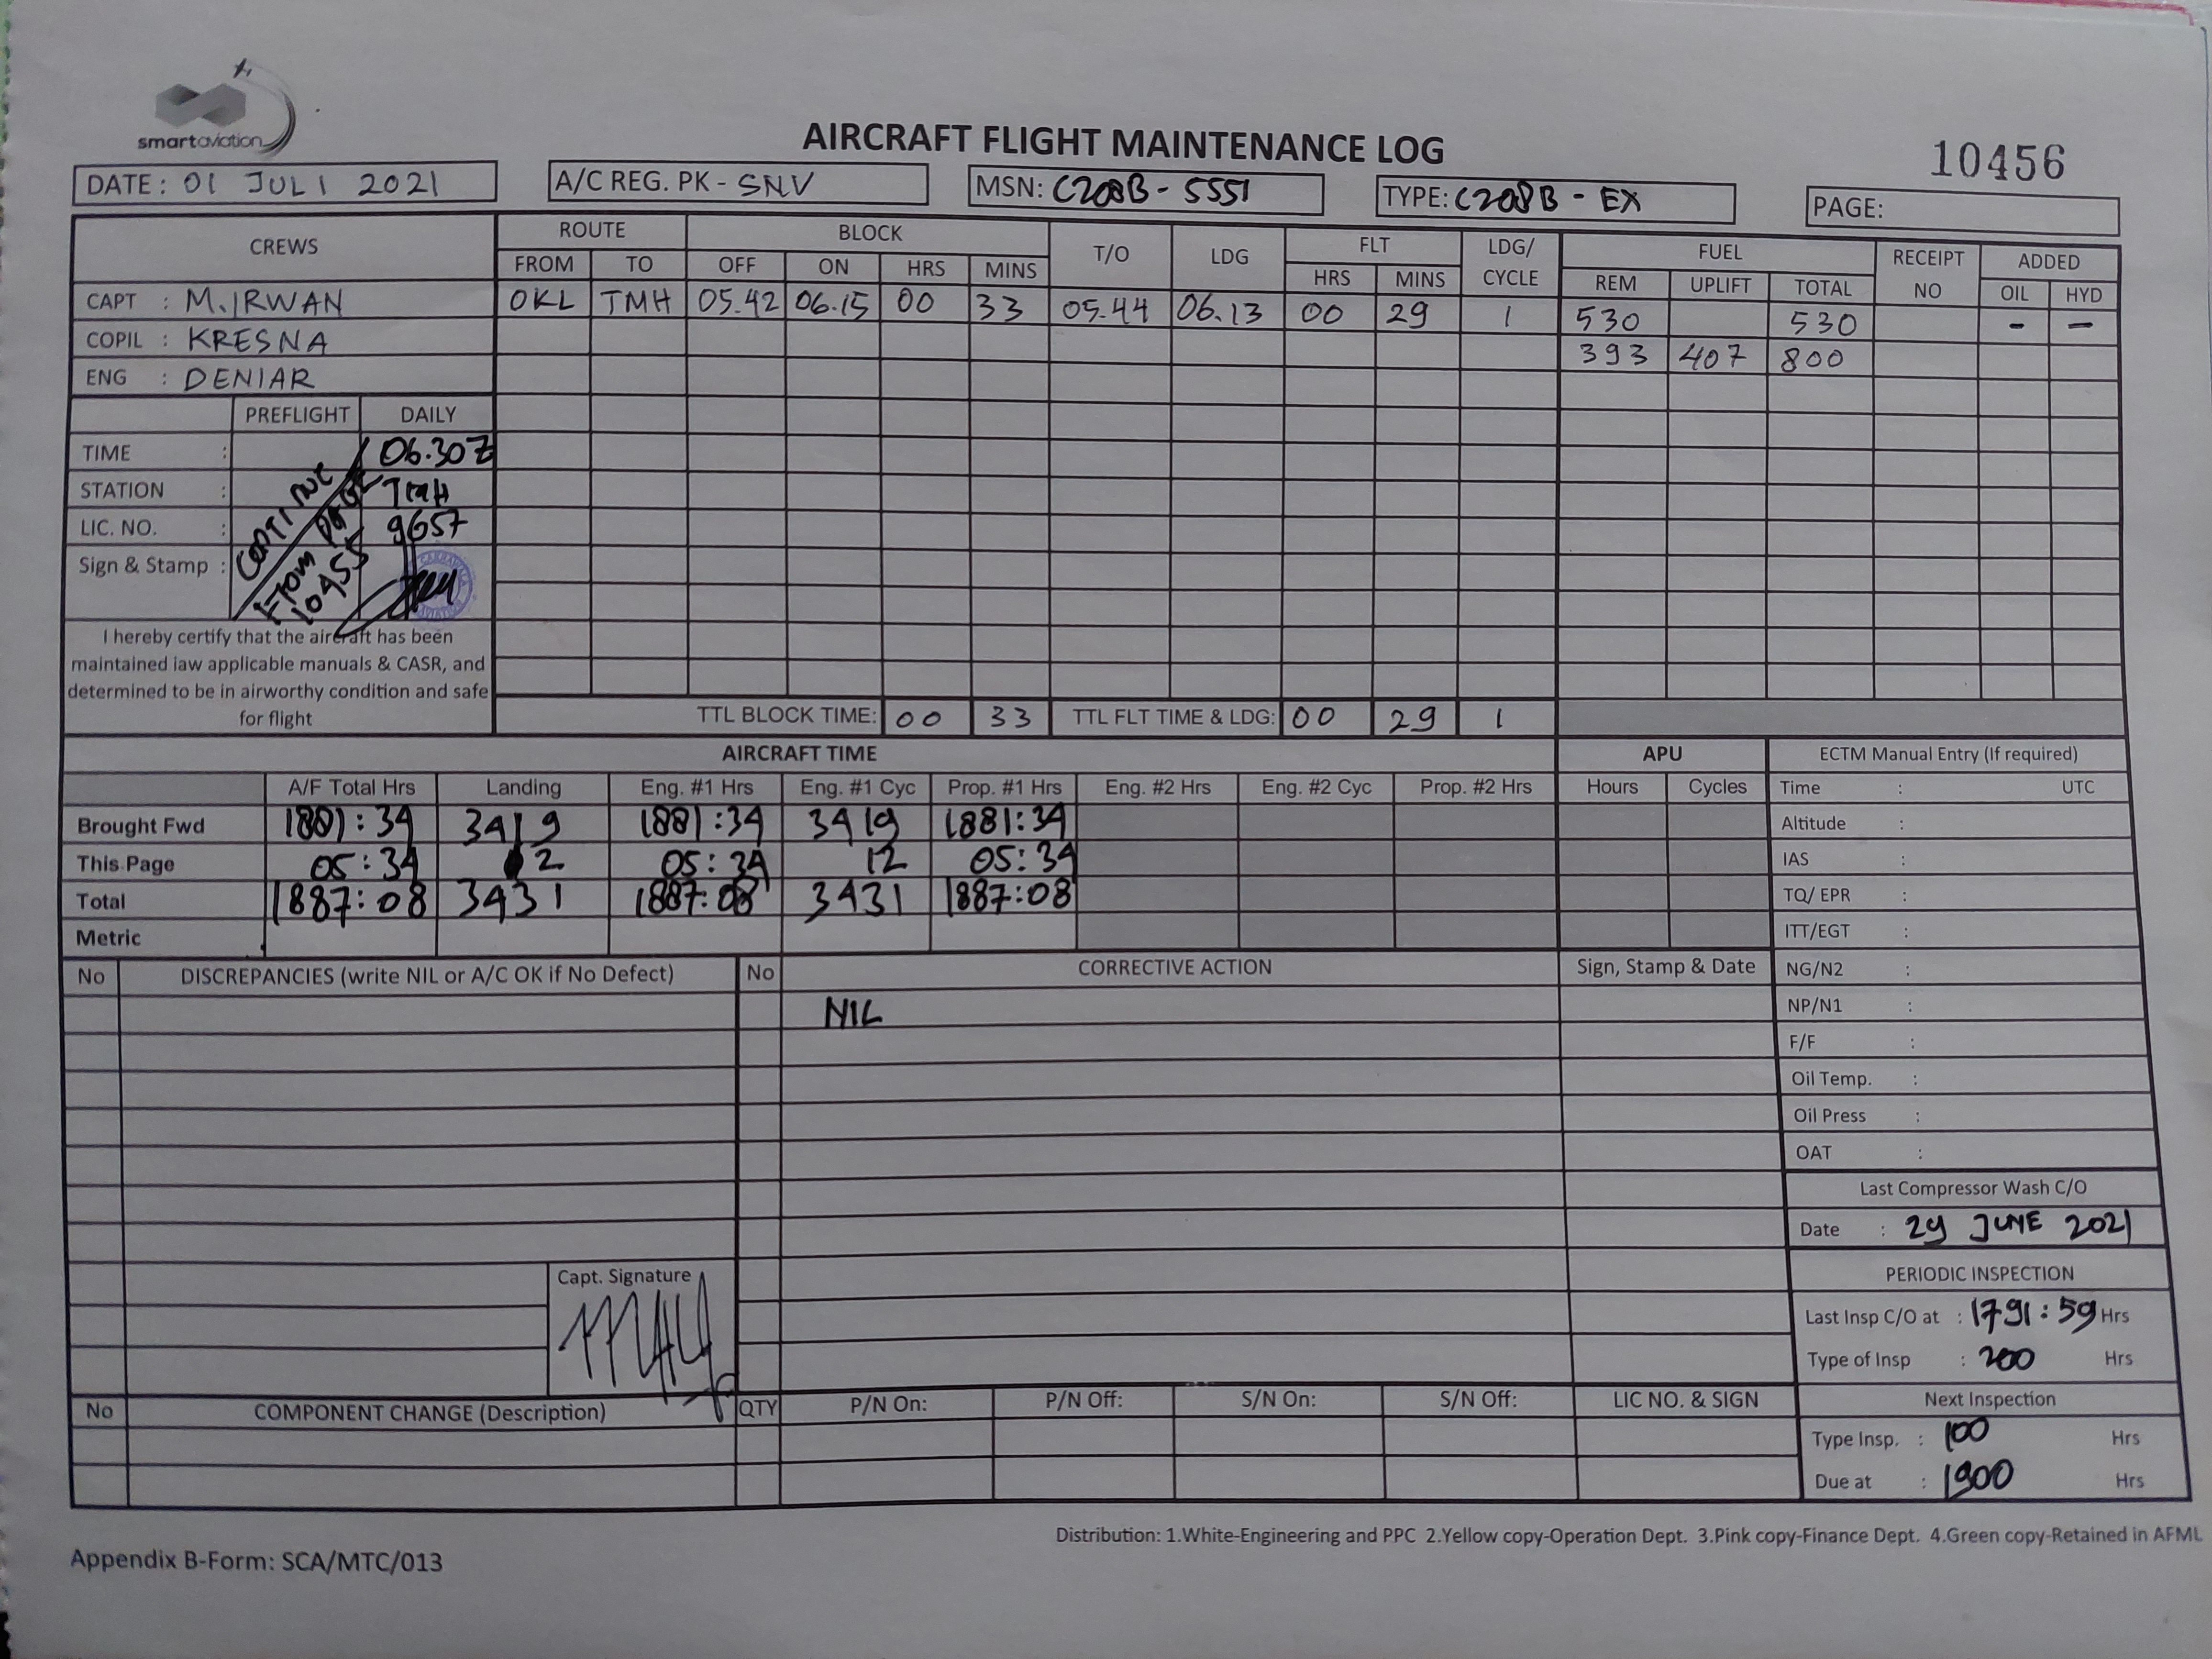 smartaviation
AIRCRAFT FLIGHT MAINTENANCE LOG
10456
DATE: 01 JULI 2021
A/C REG. PK - SNV
MSN: C208B - 5551
TYPE: C208B - EX
PAGE:
CREWS ROUTE BLOCK T/O LDG FLT LDG/ CYCLE FUEL RECEIPT NO ADDED
FROM TO OFF ON HRS MINS HRS MINS REM UPLIFT TOTAL OIL HYD
CAPT : M. IRWAN OKL TMH 05.42 06.15 00 33 05.44 06.13 00 29 1 530 530 - -
COPIL : KRESNA 393 407 800
ENG : DENIAR
PREFLIGHT DAILY
TIME : 06.30Z
STATION : TMH
LIC. NO. : 9657
Sign & Stamp :
CONTINUE
FROM PAGE
10455
I hereby certify that the aircraft has been
maintained iaw applicable manuals & CASR, and
determined to be in airworthy condition and safe
for flight
TTL BLOCK TIME: 00 33 TTL FLT TIME & LDG: 00 29 1
AIRCRAFT TIME APU ECTM Manual Entry (If required)
A/F Total Hrs Landing Eng. #1 Hrs Eng. #1 Cyc Prop. #1 Hrs Eng. #2 Hrs Eng. #2 Cyc Prop. #2 Hrs Hours Cycles Time : UTC
Brought Fwd 1881:34 3419 1881:34 3419 1881:34 Altitude :
This Page 05:34 12 05:34 12 05:34 IAS :
Total 1887:08 3431 1887:08 3431 1887:08 TQ/ EPR :
Metric ITT/EGT :
No DISCREPANCIES (write NIL or A/C OK if No Defect) No CORRECTIVE ACTION Sign, Stamp & Date NG/N2 :
NIL NP/N1 :
F/F :
Oil Temp. :
Oil Press :
OAT :
Last Compressor Wash C/O
Date : 29 JUNE 2021
Capt. Signature
PERIODIC INSPECTION
Last Insp C/O at : 1791:59 Hrs
Type of Insp : 200 Hrs
No COMPONENT CHANGE (Description) QTY P/N On: P/N Off: S/N On: S/N Off: LIC NO. & SIGN Next Inspection
Type Insp. : 100 Hrs
Due at : 1900 Hrs
Distribution: 1.White-Engineering and PPC 2.Yellow copy-Operation Dept. 3.Pink copy-Finance Dept. 4.Green copy-Retained in AFML
Appendix B-Form: SCA/MTC/013